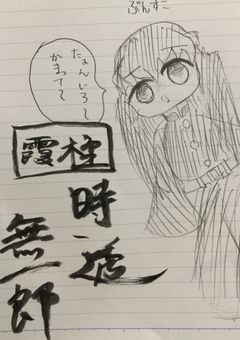 ぷんすこ
たょんじろ〜
かまって〜
霞柱
時透
無一郎